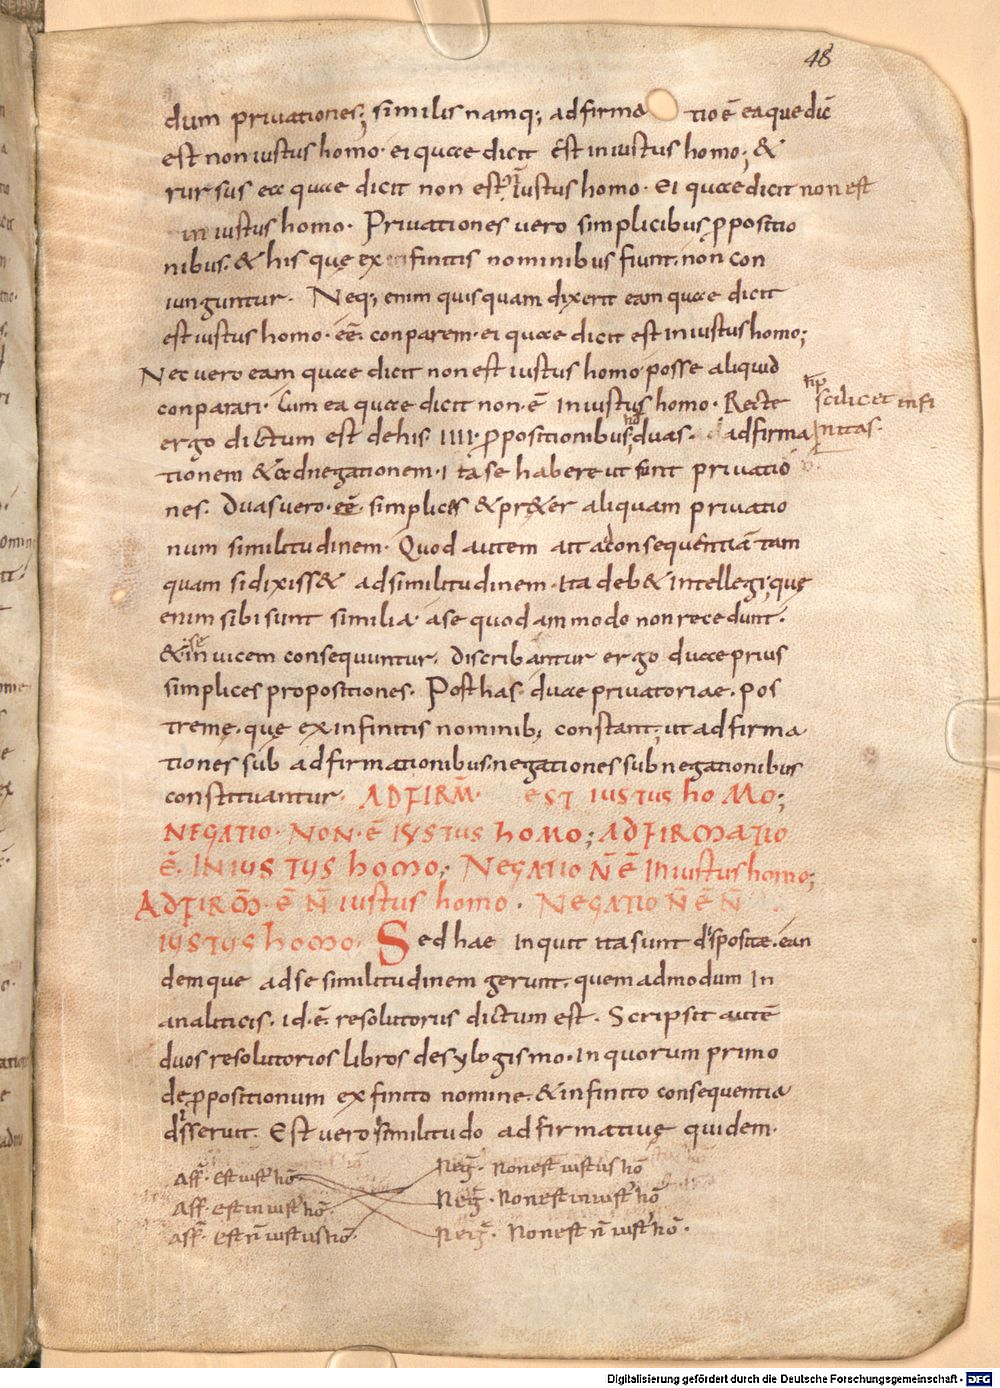 48
dum priuationes; similis namq; adfirma tio ē eaque dic̄
est non iustus homo· ei quae dicit ēst iniustus homo; &
rursus ea quae dicit non est n̄ iustus homo· ei quae dicit non est
iniustus homo· Priuationes uero simplicibus p̱positio
nibus· & his quę ex infinitis nominibus fiunt· non con
iunguntur· Neq; enim quisquam dixerit eam quae dicit
est iustus homo· ēē· conparem· ei quae dicit est iniustus homo;
Nec uero eam quae dicit non est iustus homo posse aliquid
conparari· Cum ea quae dicit non· ē iniustus homo· Recte
scilicet infi
ergo dictum est de his· IIII· p̱positionibus; duas· adfirma
nitas·
tionem & ad negationem· Ita se habere ut sint priuatio
nes· Duas uero· ēē· simplices & pr&er aliquam priuatio
num similitudinem· Quod autem ait ad consequentiā tam
quam si dixiss& ad similitudinem· Ita deb& intellegi; quę
enim sibi sunt similia· a se quodammodo non recedunt·
& in se uicem consequuntur· Discribantur ergo duae prius
simplices propositiones· Post has· duae priuatoriae· pos
tremę· quę ex infinitis nominib; constant; ut adfirma
tiones sub adfirmationibus· negationes sub negationibus
constituantur· ADFIRM̄· EST IUSTUS hOMO;
NEGATIO· NON· Ē IUSTUS hOMO; ADFIRMATIO
Ē· INIUSTUS hOMO; NEGATIO N̄ Ē Iniustus homo;
ADFIRM̄· Ē N̄ iustus homo· NEGATIO N̄ Ē N̄
IUSTUS hOMO· Sed hae inquit ita sunt dispositae· ean
demque ad se similitudinem gerunt· quemadmodum In
analiticis· id· ē· resolutoriis dictum est· Scripsit autē
duos resolutorios libros de sylogismo· In quorum primo
de p̱positionum ex finito nomine· & infinito consequentia
disseruit· Est uero similitudo adfirmatiuę quidem·
Aff̄· est iust' hō· Neḡ· Non est iustus hō
Aff̄· est iniust' hō· Neḡ· Non est iniust' hō
Aff̄· est n̄ iustus hō· Neḡ· Non est n̄ iust' hō·
Digitalisierung gefördert durch die Deutsche Forschungsgemeinschaft - DFG